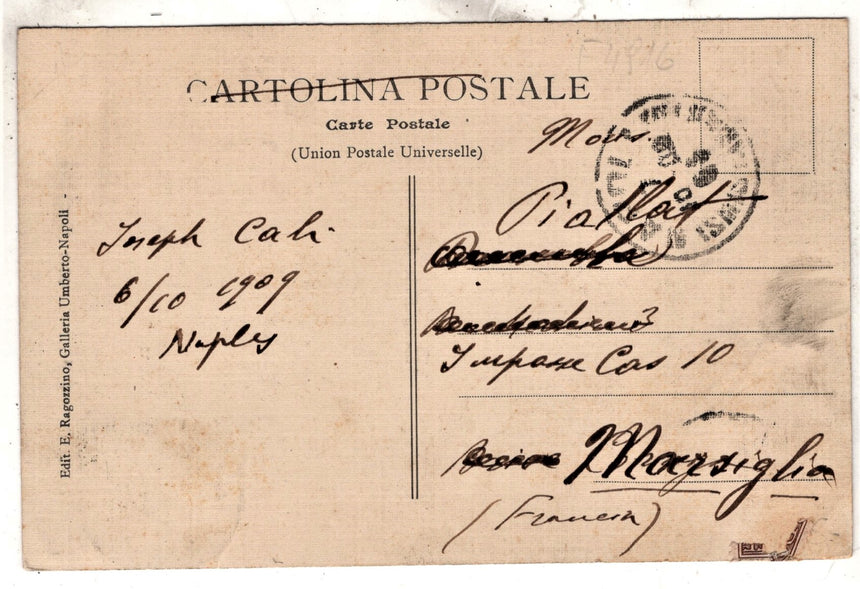 CARTOLINA POSTALE
Carte Postale
(Union Postale Universelle)
Edit. E. Ragozzino, Galleria Umberto-Napoli -
Joseph Cali
6/10 1909
Naples
Piallat
Impasse Cas 10
Marsiglia
(Francia)